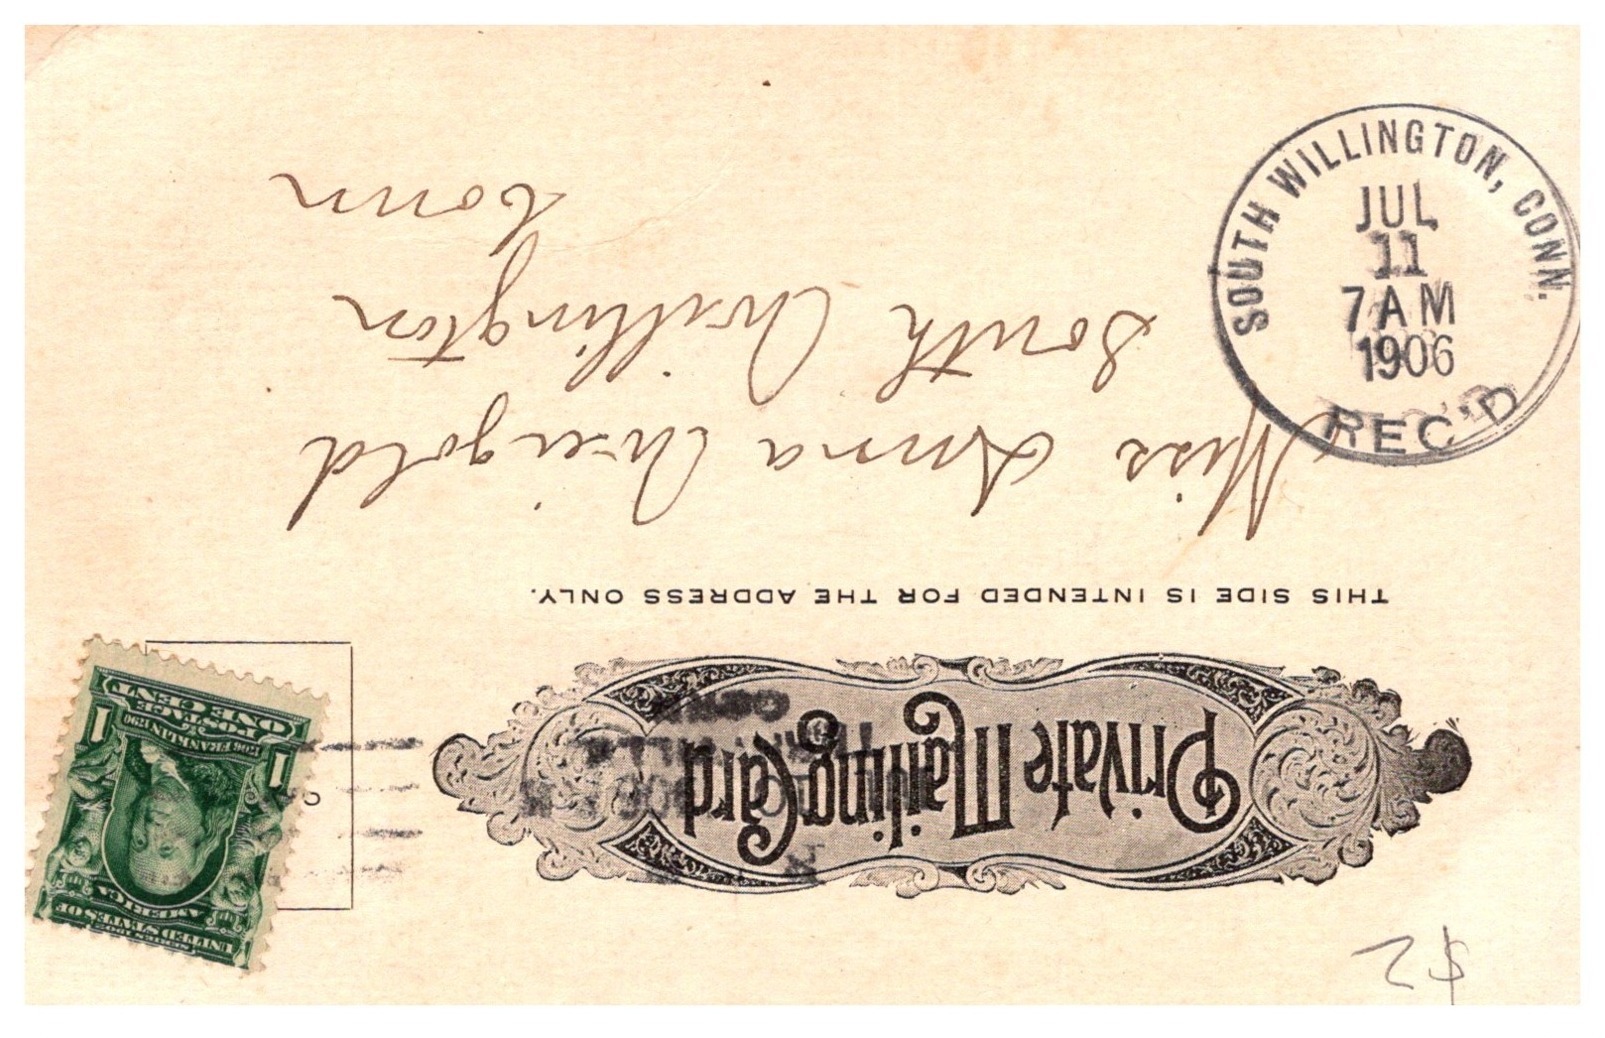 Private Mailing Card
THIS SIDE IS INTENDED FOR THE ADDRESS ONLY.
Miss Anna Weigold
South Willington
Conn
SOUTH WILLINGTON, CONN.
JUL
11
7 AM
1906
REC'D
SERIES 1902
UNITED STATES OF
AMERICA
1706 FRANKLIN 1790
POSTAGE
ONE CENT
1 1
$2